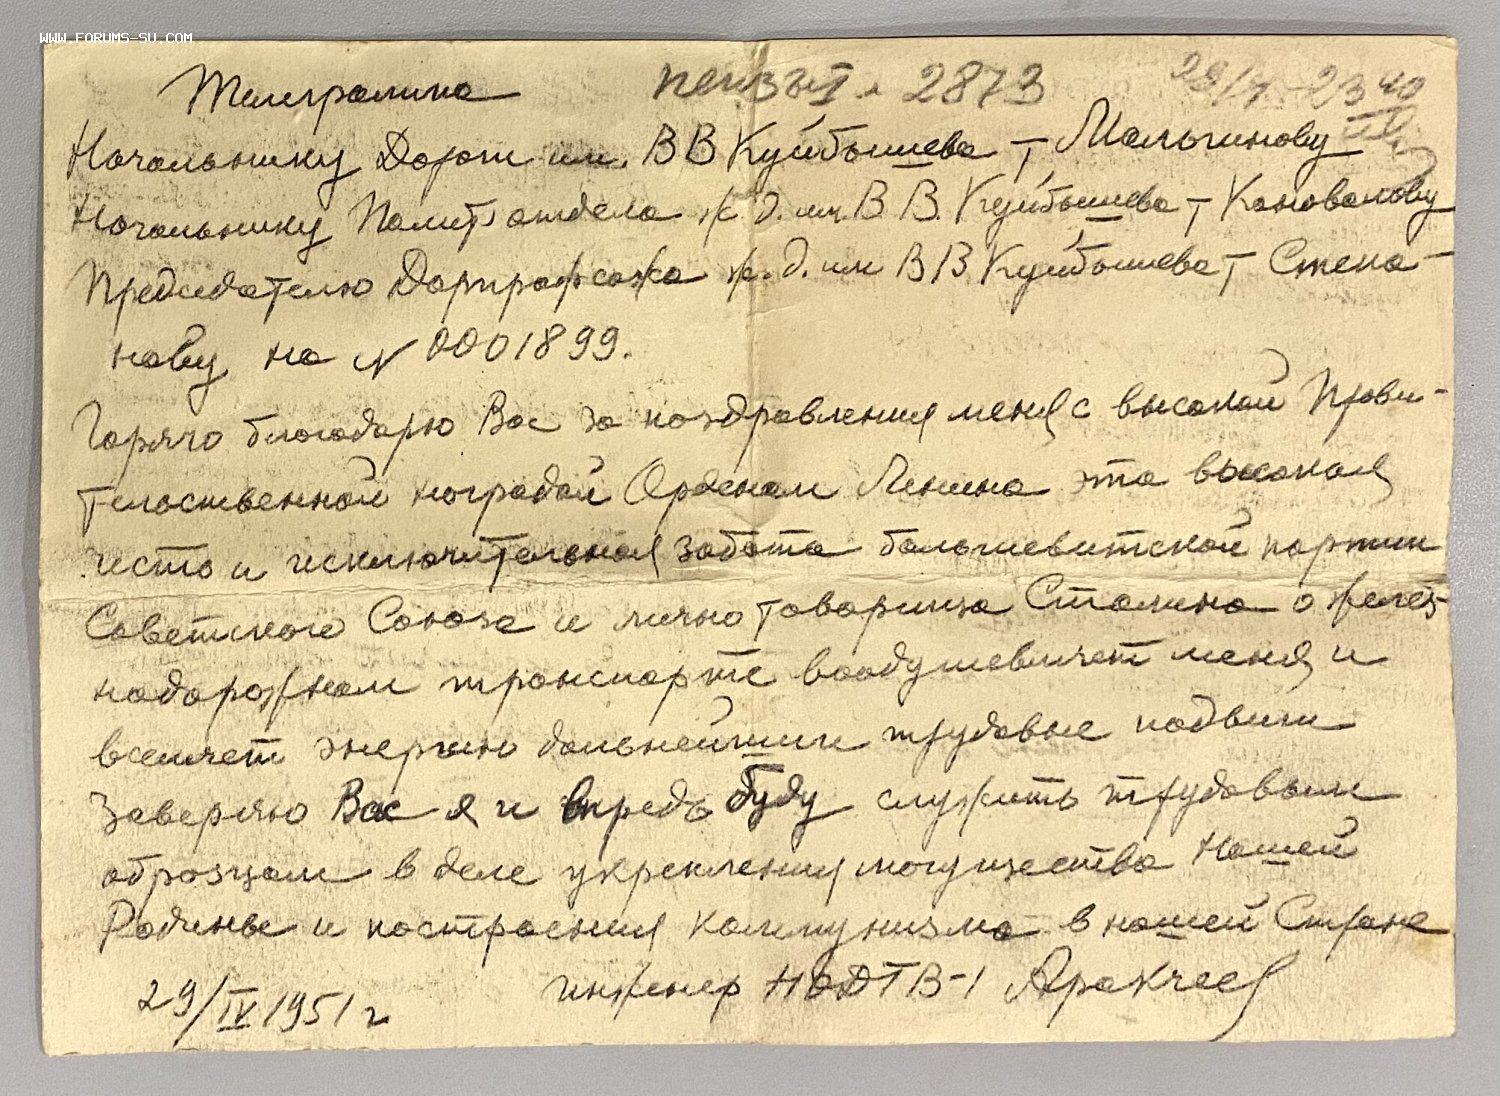 WWW.FORUMS-SU.COM
Телеграмма Пенза I 2873 29/ 23 40
Начальнику Дороги им. ВВ Куйбышева – Мальгинову
Начальнику Политотдела ж д. им. В В. Куйбышева – Коновалову
Председателю Дорпрофсожа ж. д. им ВВ Куйбышева – Степа-
нову на № 0001899.
Горячо благодарю Вас за поздравления меня с высокой Прави-
тельственной наградой Орденом Ленина эта высокая
честь и исключительная забота большевитской партии
Советского Союза и лично товарища Сталина о желез
нодорожном транспорте воодушевляет меня и
вселяет энергию дальнейшии трудовые подвиги
Заверяю Вас я и впредь буду служить трудовым
образцом в деле укрепления могущества нашей
Родины и построения коммунизма в нашей Стране
29/IV 1951 г инженер НОДТВ-1 Аракчеев